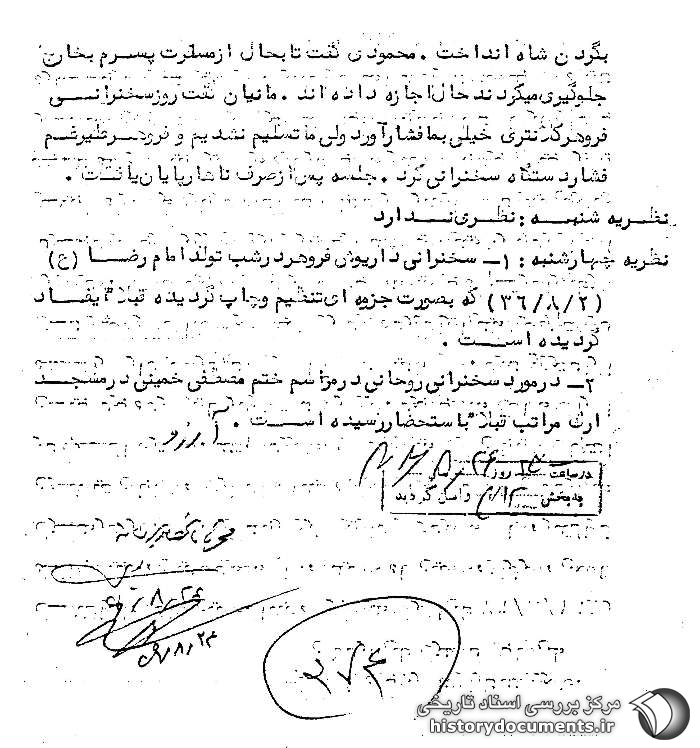 بگردن شاه انداخت . محمودی گفت تا بحال از مسافرت پسرم بخارج
جلوگیری میکردند حال اجازه داده اند . مانیان گفت روز سخنرانی
فروهر کلانتری خیلی بما فشار آورد ولی ما تسلیم نشدیم و فروهر علیرغم
فشار دستگاه سخنرانی کرد . جلسه پس از صرف ناهار پایان یافت .
نظریه شنبه : نظری ندارد
نظریه چهارشنبه : ۱- سخنرانی داریوش فروهر در شب تولد امام رضا (ع)
(۳۶/۸/۲) که بصورت جزوه ای تنظیم و چاپ گردیده قبلا" ایفاد
گردیده است .
۲- در مورد سخنرانی روحانی در مراسم ختم مصطفی خمینی در مسجد
ارک مراتب قبلا" باستحضار رسیده است .
در ساعت روز
به بخش ۳۱۲ واصل گردید
۸/۲۴
۲۷۴
مرکز بررسی اسناد تاریخی
historydocuments.ir